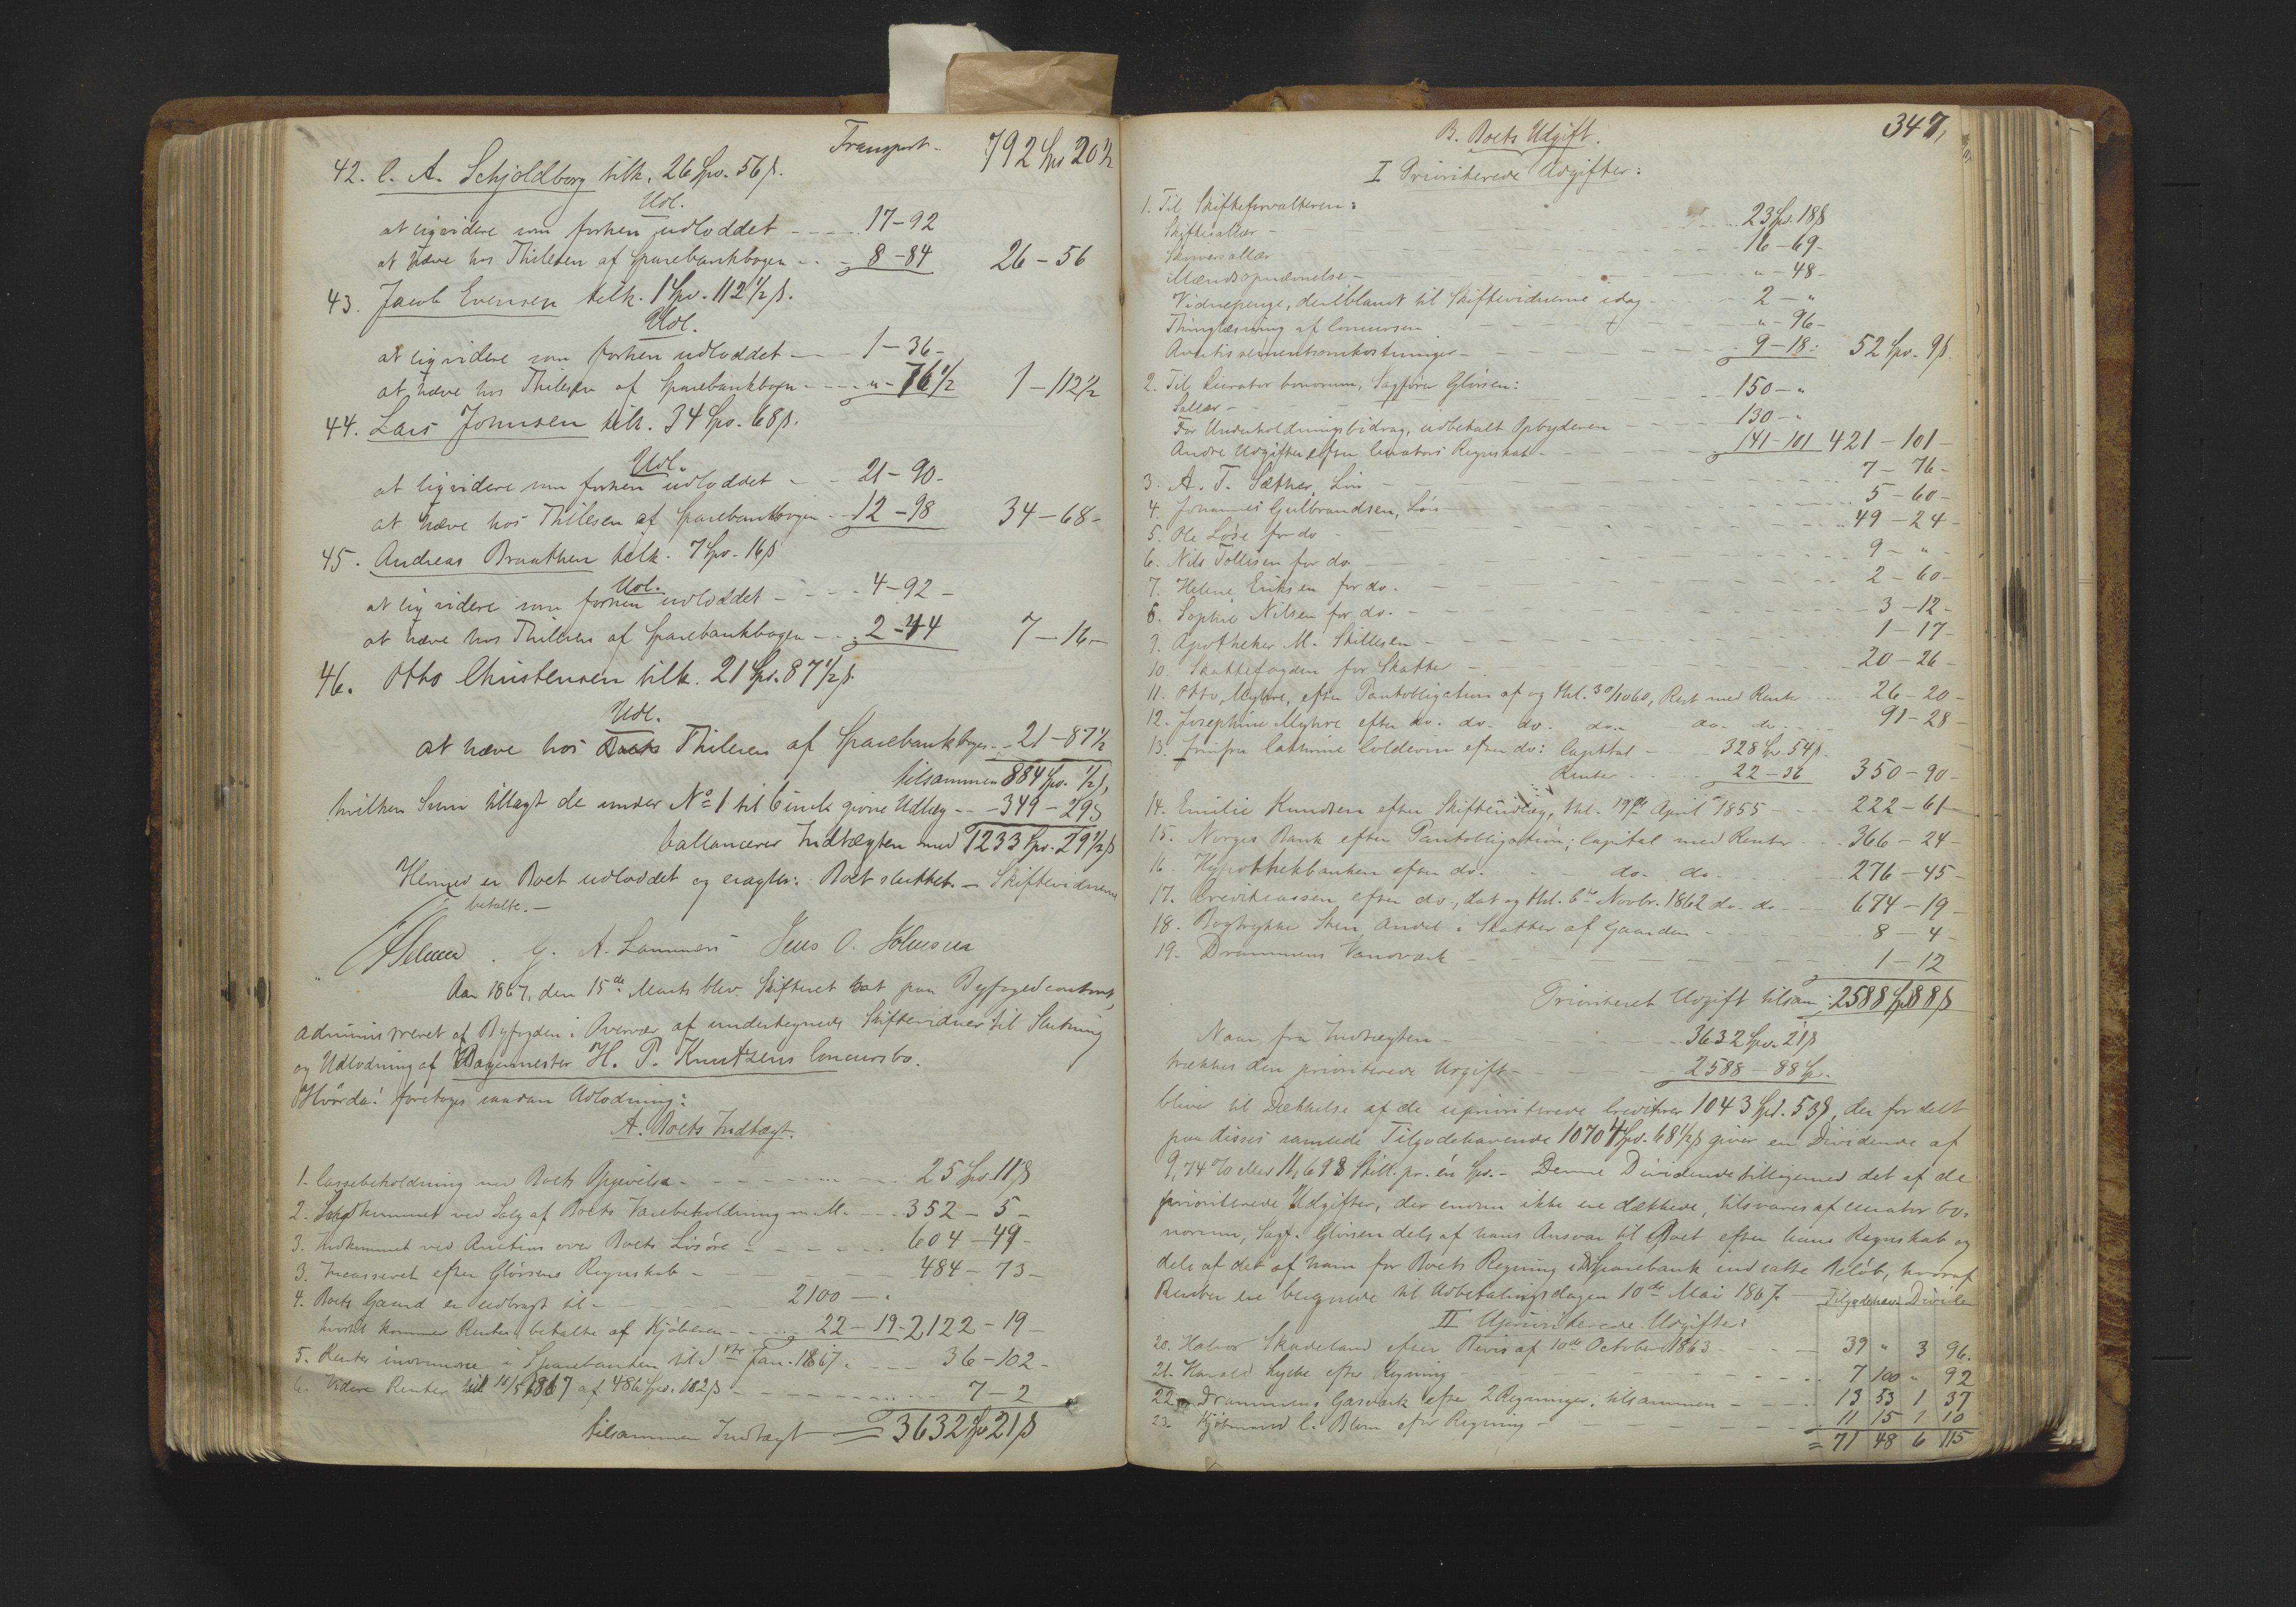 Transport - 792 Spd 20½
42. C. A. Schjoldborg tilk. 26 Spd. 56 ß.
Udl.
at liqvidere som forhen udloddet - - 17-92
at hæve hos Thilesen af Sparebankbogen - - 8-84 26-56
43. Jacob Evensen tilk. 1 Spd. 112½ ß.
Udl.
at liqvidere som forhen udloddet - - 1-36-
at hæve hos Thilesen af Sparebankbogen - - „-76½ 1-112½
44. Lars Johnsen tilk. 34 Spd. 68 ß.
Udl.
at liqvidere som forhen udloddet - - 21-90-
at hæve hos Thilesen af Sparebankbogen - 12-98 34-68-
45. Andreas Braathen tilk. 7 Spd. 16 ß
Udl.
at liqvidere som forhen udloddet - - - 4-92-
at hæve hos Thilesen af Sparebankbogen - - 2-44 7-16-
46. Otto Christensen tilk. 21 Spd. 87½ ß
Udl.
at hæve hos Thilesen af Sparebankbogen - - 21-87½
tilsammen 884 Spd. ½ ß,
hvilken Sum tillagt de under No 1 til 6 incl. givne Udlæg - - 349-29 ß
ballancerer Indtægten med 1233 Spd. 29½ ß
Hermed er Boet udloddet og eragter: Boet sluttet. - Skiftevidnerne
betalte. -
G. A. Lammers Jens O. Johnsen
Aar 1867, den 15de Marts blev Skifteret sat paa Byfogedcontoret,
administreret af Byfogden i Overvær af undertegnede Skiftevidner til Slutning
og Udlodning af Vognmester H. P. Knutzens Concursbo.
Hvorda: foretoges saadan Udlodning:
A. Boets Indtægt.
1. Cassebeholdning ved Boets Opgivelse - - - 25 Spd 11 ß
2. Indkommet ved Salg af Boets Varebeholdning m. M. - - - 352-5-
3. Indkommet ved Auction over Boets Løsøre - - - 604-49-
3. Incasseret efter Glørsens Regnskab - - - 484-73-
4. Boets Gaard er udbragt til - - - 2100-„
hvortil kommer Renter, betalte af Kjøberen - - - 22-19- 2122-19-
5. Renter indvundne i Sparebanken til 1ste Jan. 1867. - - - 36-102-
6. Videre Renter til 10/5 1867 af 486 Spd. 102 ß - - - 7-2
tilsammen Indtægt = 3632 Spd 21 ß
347,
B. Boets Udgift.
I Prioriterede Udgifter:
1. Til Skifteforvalteren:
Skiftesallær - - - 23 Spd. 18 ß
Skriversallær - - - 16-69-
Mændsopnævnelse - - - „-48-
Vidnepenge, deriblandt til Skiftevidnerne idag - - - 2-„
Thinglæsning af Concursen - - - „-96-
Avertissementsomkostninger - - - 9-18- 52 Spd. 9 ß.
2. Til Curator bonorum, Sagfører Glørsen:
Sallær - - - 150-„
For Underholdningsbidrag, udbetalt Opbyderen - - - 130-„
Andre Udgifter efter Curators Regnskab - - - 141-101 421-101-
3. A. T. Sæther, Løn - - - 7-76-
4. Johannes Gulbrandsen, Løn - - - 5-60-
5. Ole Løse for do - - - 49-24-
6. Nils Tollesen for do - - - 9-„-
7. Helene Eriksen for do. - - - 2-60-
8. Sophie Nilsen for do. - - - 3-12-
9. Apotheker M. Skillesen - - - 1-17-
10. Skattefogden for Skatter - - - 20-26-
11. Otto Myhre, efter Pantobligation af og thl. 30/10 60, Rest med Renter - - - 26-20-
12. Josephine Myhre efter do. do. do. do. do. do. - - - 91-28-
13. Jomfru Cathrine Coldevin efter do: Capital - - - 328 Spd. 54 ß.
Renter - - - 22-36 350-90-
14. Emilie Knudsen efter Skifteudlæg, thl. 19de April 1855 - - - 222-61-
15. Norges Bank efter Pantobligation; Capital med Renter - - - 366-24-
16. Hypothekbanken efter do. do. do. - - - 276-45-
17. Creditcassen efter do., dat og thl. 6te Novbr. 1862 do. do - - - 674-19-
18. Bogtrykker Steen, Andel i Skatter af Gaarden - - - 8-4-
19. Drammens Vandværk - - - 1-12
Prioriteret Udgift tilsam: 2588 Spd 88 ß
Naar fra Indtægten - - - 3632 Spd. 21 ß
trækkes den prioriterede Udgift - - - 2588-88 Sp.
bliver til Dækkelse af de uprioriterede Creditorer 1043 Spd. 53 ß, der fordelt
paa disses samlede Tilgodehavende 10704 Spd. 68½ ß giver en Dividende af
9,74 % eller 11,698 Skill. pr. én Spd. - Denne Dividende tilligemed det af de
prioriterede Udgifter, der endnu ikke ere dækkede, tilsvares af curator bo-
norum, Sagf. Glørsen dels af hans Ansvar til Boet efter hans Regnskab og
dels af det af ham for Boets Regning i D. Sparebank indsatte Beløb, hvoraf
Renter ere beregnede til Udbetalingsdagen 10de Mai 1867.
Tilgodehav. Dividen
II Uprioriterede Udgifter:
20. Halvor Skadeland efter Bevis af 10de October 1863 - - - 39 „ 3 96.
21. Harald Lyche efter Regning - - - 7 100 „ 92
22. Drammens Gasværk efter 2 Regninger, tilsammen - - - 13 53 1 37
23. Kjøbmand C. Blom efter Regning - - - 11 15 1 10
= 71 48 6 115